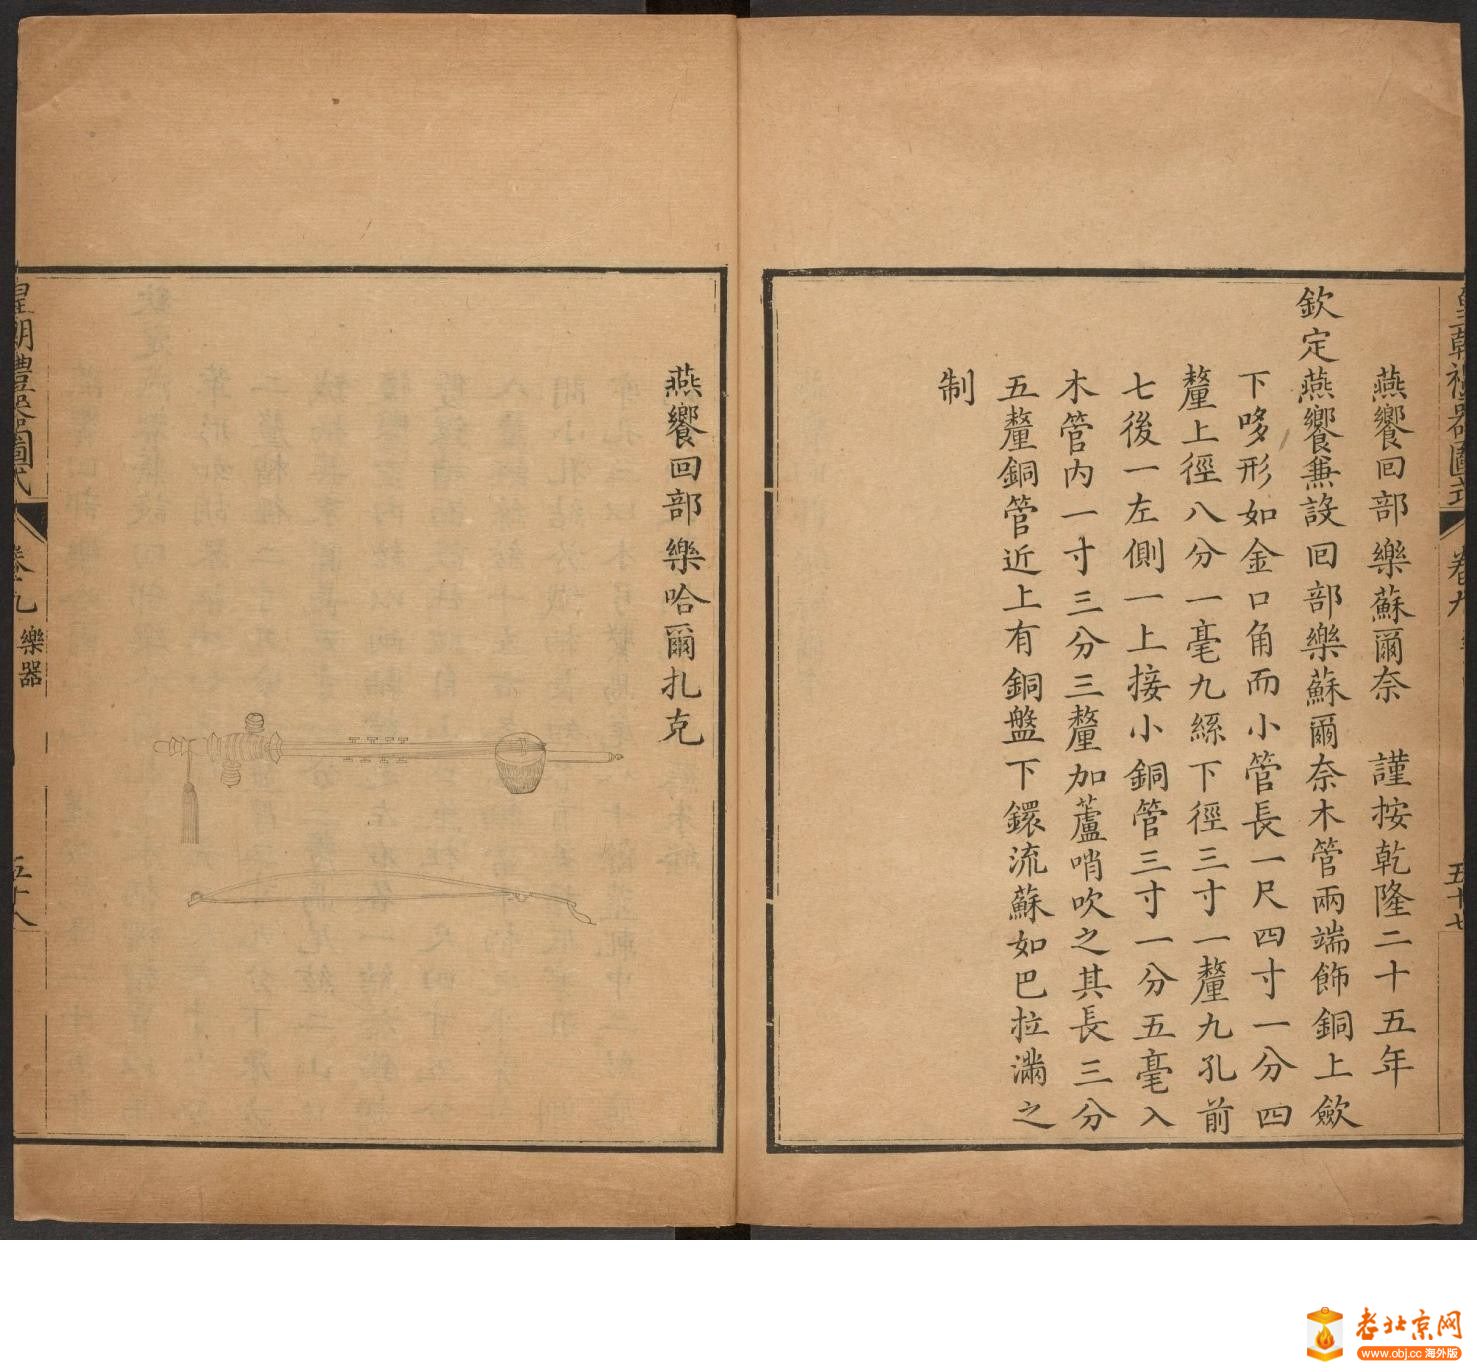 皇朝禮器圖式 卷九 五十七
燕饗回部樂蘇爾奈 謹按乾隆二十五年
欽定燕饗兼設回部樂蘇爾奈木管兩端飾銅上斂
下哆形如金口角而小管長一尺四寸一分四
釐上徑八分一毫九絲下徑三寸一釐九孔前
七後一左側一上接小銅管三寸一分五毫入
木管內一寸三分三釐加蘆哨吹之其長三分
五釐銅管近上有銅盤下鐶流蘇如巴拉滿之
制
燕饗回部樂哈爾扎克
皇朝禮器圖式 卷九 樂器 五十八
老北京网
www.obj.cc 海外版